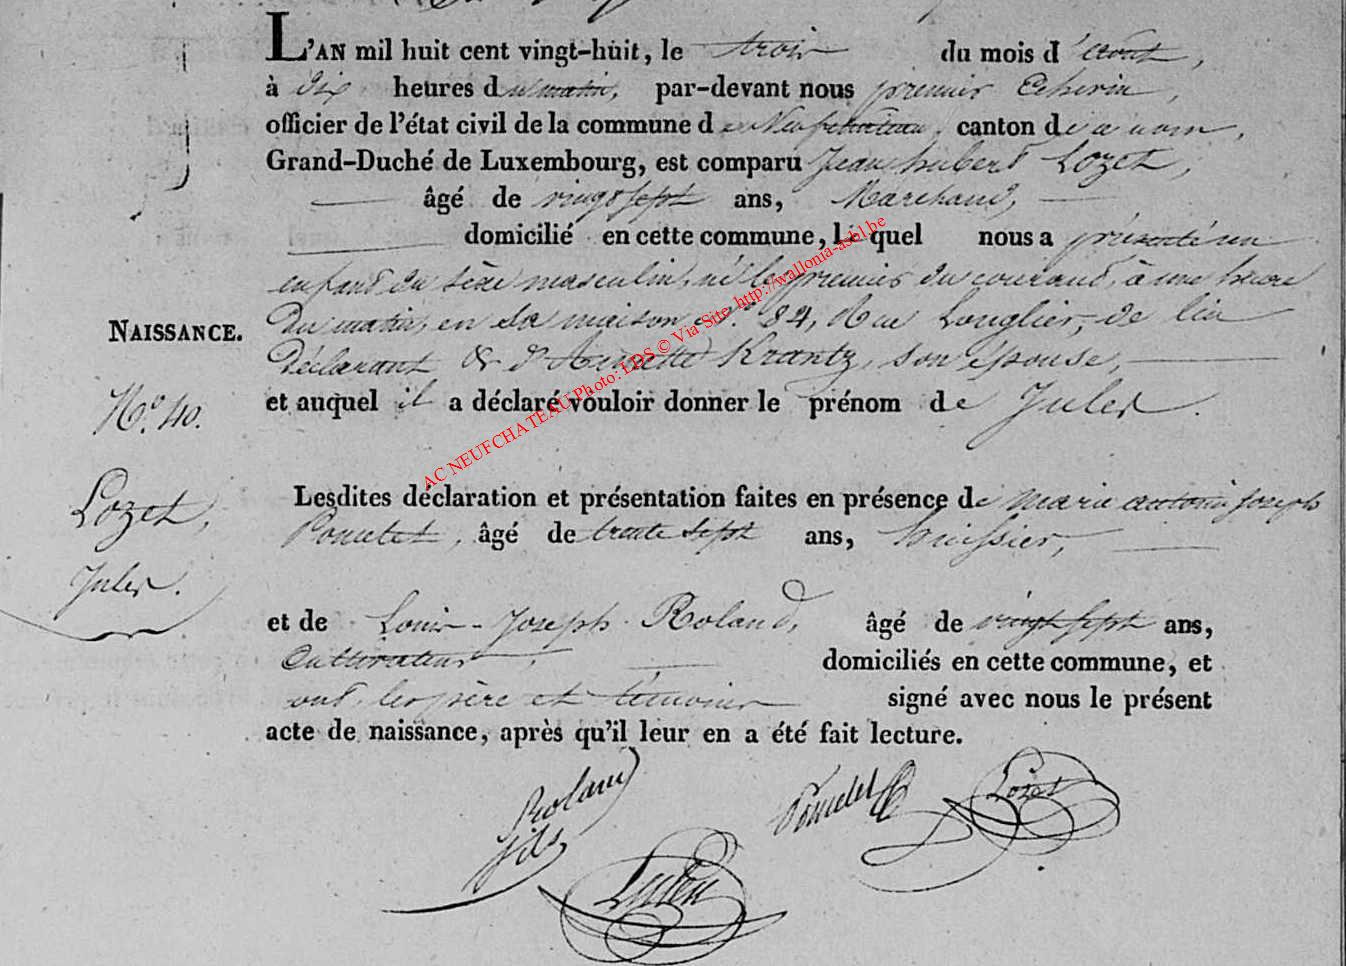 L'AN mil huit cent vingt-huit, le trois du mois d'août,
à dix heures du matin, par-devant nous premier Echevin,
officier de l'état civil de la commune de Neufchateau, canton de ce nom,
Grand-Duché de Luxembourg, est comparu Jean hubert Lozet,
âgé de vingt sept ans, Marchand,
domicilié en cette commune, lequel nous a présenté un
enfant du sèxe masculin, né le premier du courant, à une heure
NAISSANCE.
du matin, en sa maison N°. 24, Rue Longlier, de lui
déclarant & d' Krantz, son épouse,
et auquel il a déclaré vouloir donner le prénom de Jules.
N.° 40.
Lozet,
Jules.
Lesdites déclaration et présentation faites en présence de Marie antoine Joseph
Poncelet, âgé de trente sept ans, huissier,
et de Louis-Joseph Roland, âgé de vingt sept ans,
Cultivateur, domiciliés en cette commune, et
ont, les père et témoins signé avec nous le présent
acte de naissance, après qu'il leur en a été fait lecture.
Roland Poncelet Lozet
fils
AC NEUFCHATEAU Photo: LDS © Via Site http://wallonia-asbl.be